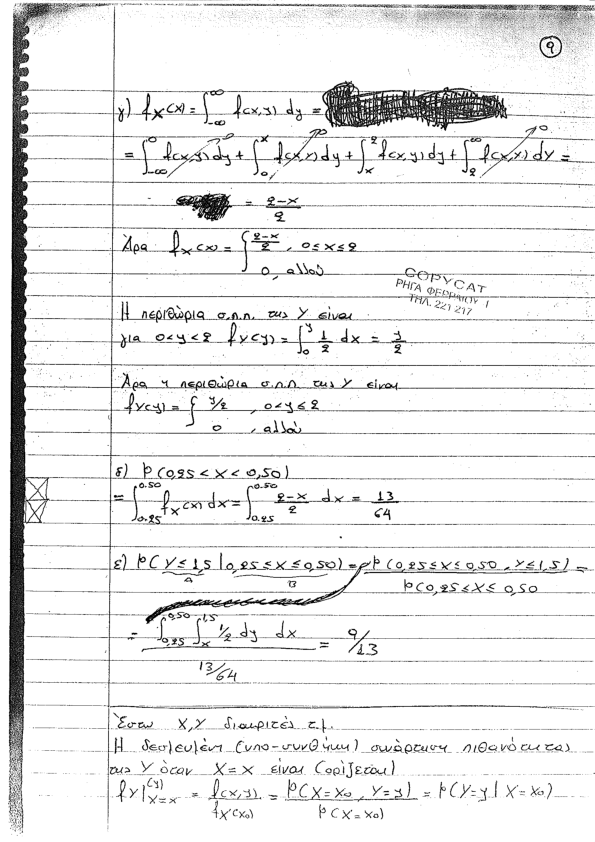 9
γ) f_X(x) = ∫_{-∞}^{∞} f(x,y) dy =
= ∫_{-∞}^{0} f(x,y) dy + ∫_{0}^{x} f(x,y) dy + ∫_{x}^{2} f(x,y) dy + ∫_{2}^{∞} f(x,y) dy =
= (2-x)/2
Άρα f_X(x) = { (2-x)/2 , 0≤x≤2
0, αλλού
COPYCAT
ΡΗΓΑ ΦΕΡΡΑΙΟΥ 1
ΤΗΛ. 221 217
Η περιθώρια σ.π.π. της Y είναι
για 0<y<2 f_Y(y) = ∫_{0}^{y} 1/2 dx = y/2
Άρα η περιθώρια σ.π.π της Y είναι
f_Y(y) = { y/2 , 0<y≤2
0 , αλλού
δ) P(0,25 < X < 0,50)
= ∫_{0.25}^{0.50} f_X(x) dx = ∫_{0.25}^{0.50} (2-x)/2 dx = 13/64
ε) P(Y≤1,5 | 0,25≤X≤0,50) = P(0,25≤X≤0,50, Y≤1,5) =
A B P(0,25≤X≤0,50
= ∫_{0,25}^{0,50} ∫_{x}^{1,5} 1/2 dy dx = 9/13
13/64
Έστω X,Y διακριτές τ.μ.
Η δεσμευμένη (υπο-συνθήκη) συνάρτηση πιθανότητας
της Y όταν X=x είναι (ορίζεται)
f_Y|_{X=x}(y) = f(x,y)/f_X(x0) = P(X=x0, Y=y)/P(X=x0) = P(Y=y | X=x0)